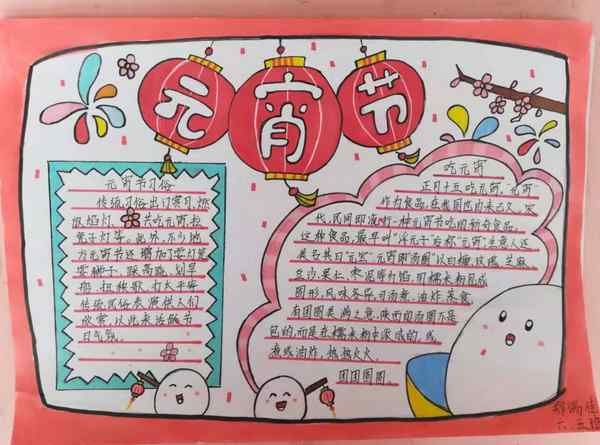 元宵节
元宵节习俗
传统习俗出门赏月、燃
放焰灯、共吃元宵、拉
兔子灯等。此外,不少地
方元宵节还增加了耍龙灯
耍狮子、踩高跷、划旱
船、扭秧歌、打太平等
传统民俗表演供人们
欣赏,以此来活跃节
日气氛。
吃元宵
正月十五吃元宵,"元宵"
作为食品,在我国也由来已久,宋
代,民间即流行一种元宵节吃的新奇食品。
这种食品,最早叫"浮元子"后称"元宵",生意人还
美名其曰"元宝"。元宵即"汤圆"以白糖、玫瑰、芝麻、
豆沙、果仁、枣泥等为馅,用糯米粉包成
圆形,风味各异。可汤煮、油炸、蒸食,
有团圆美满之意。陕西的汤圆不是
包的,而是在糯米粉中滚成的,或
煮或油炸,热热火火,
团团圆圆。
六、五班